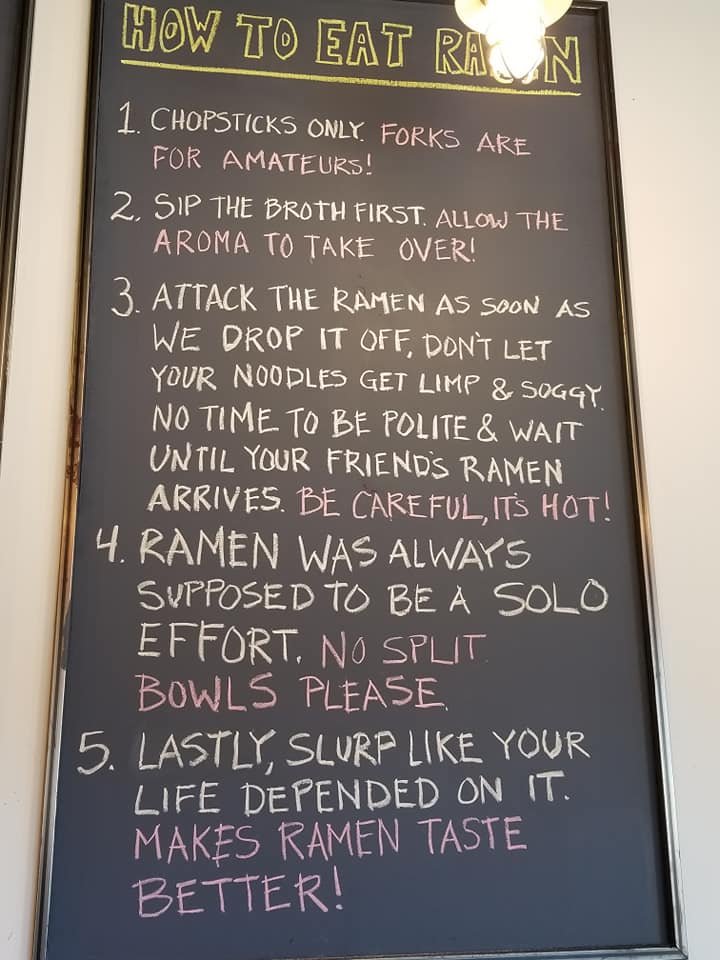 HOW TO EAT RAMEN
1. CHOPSTICKS ONLY. FORKS ARE
FOR AMATEURS!
2. SIP THE BROTH FIRST. ALLOW THE
AROMA TO TAKE OVER!
3. ATTACK THE RAMEN AS SOON AS
WE DROP IT OFF, DON'T LET
YOUR NOODLES GET LIMP & SOGGY.
NO TIME TO BE POLITE & WAIT
UNTIL YOUR FRIEND'S RAMEN
ARRIVES. BE CAREFUL, IT'S HOT!
4. RAMEN WAS ALWAYS
SUPPOSED TO BE A SOLO
EFFORT. NO SPLIT
BOWLS PLEASE.
5. LASTLY, SLURP LIKE YOUR
LIFE DEPENDED ON IT.
MAKES RAMEN TASTE
BETTER!